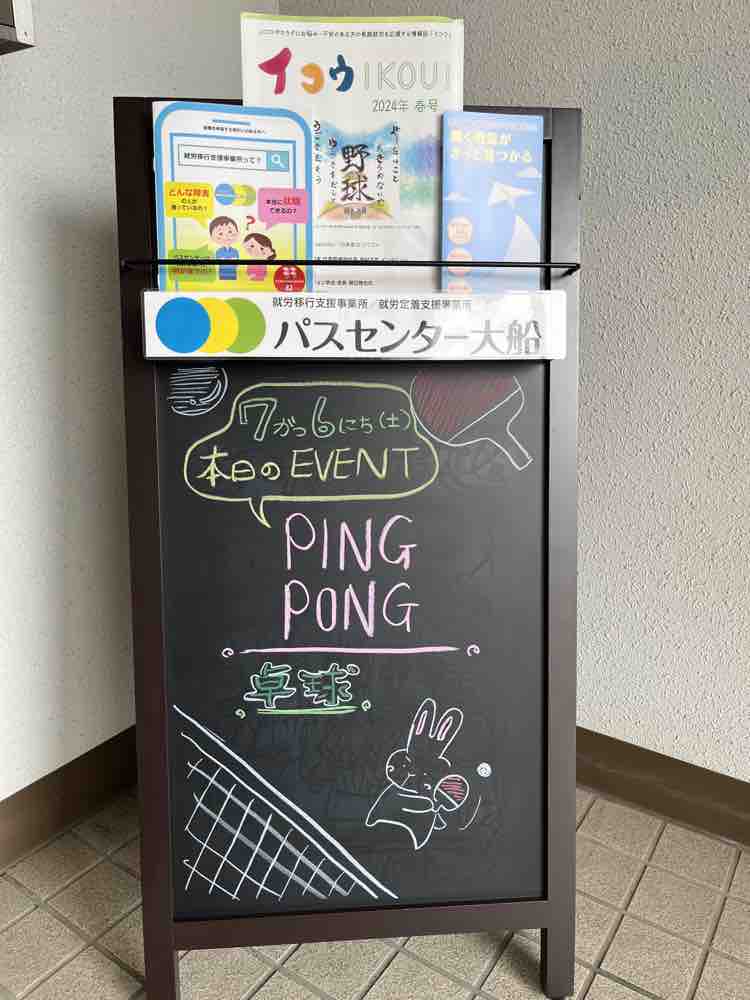 イコウ IKOU!
2024年 春号
野球
就労移行支援事業所って?
どんな障害
の人が
通っているの?
本当に就職
できるの?
?
パスセンターは
働く職場が
きっと見つかる
就労移行支援事業所/就労定着支援事業所
パスセンター大船
7がつ6にち(土)
本日のEVENT
PING
PONG
卓球